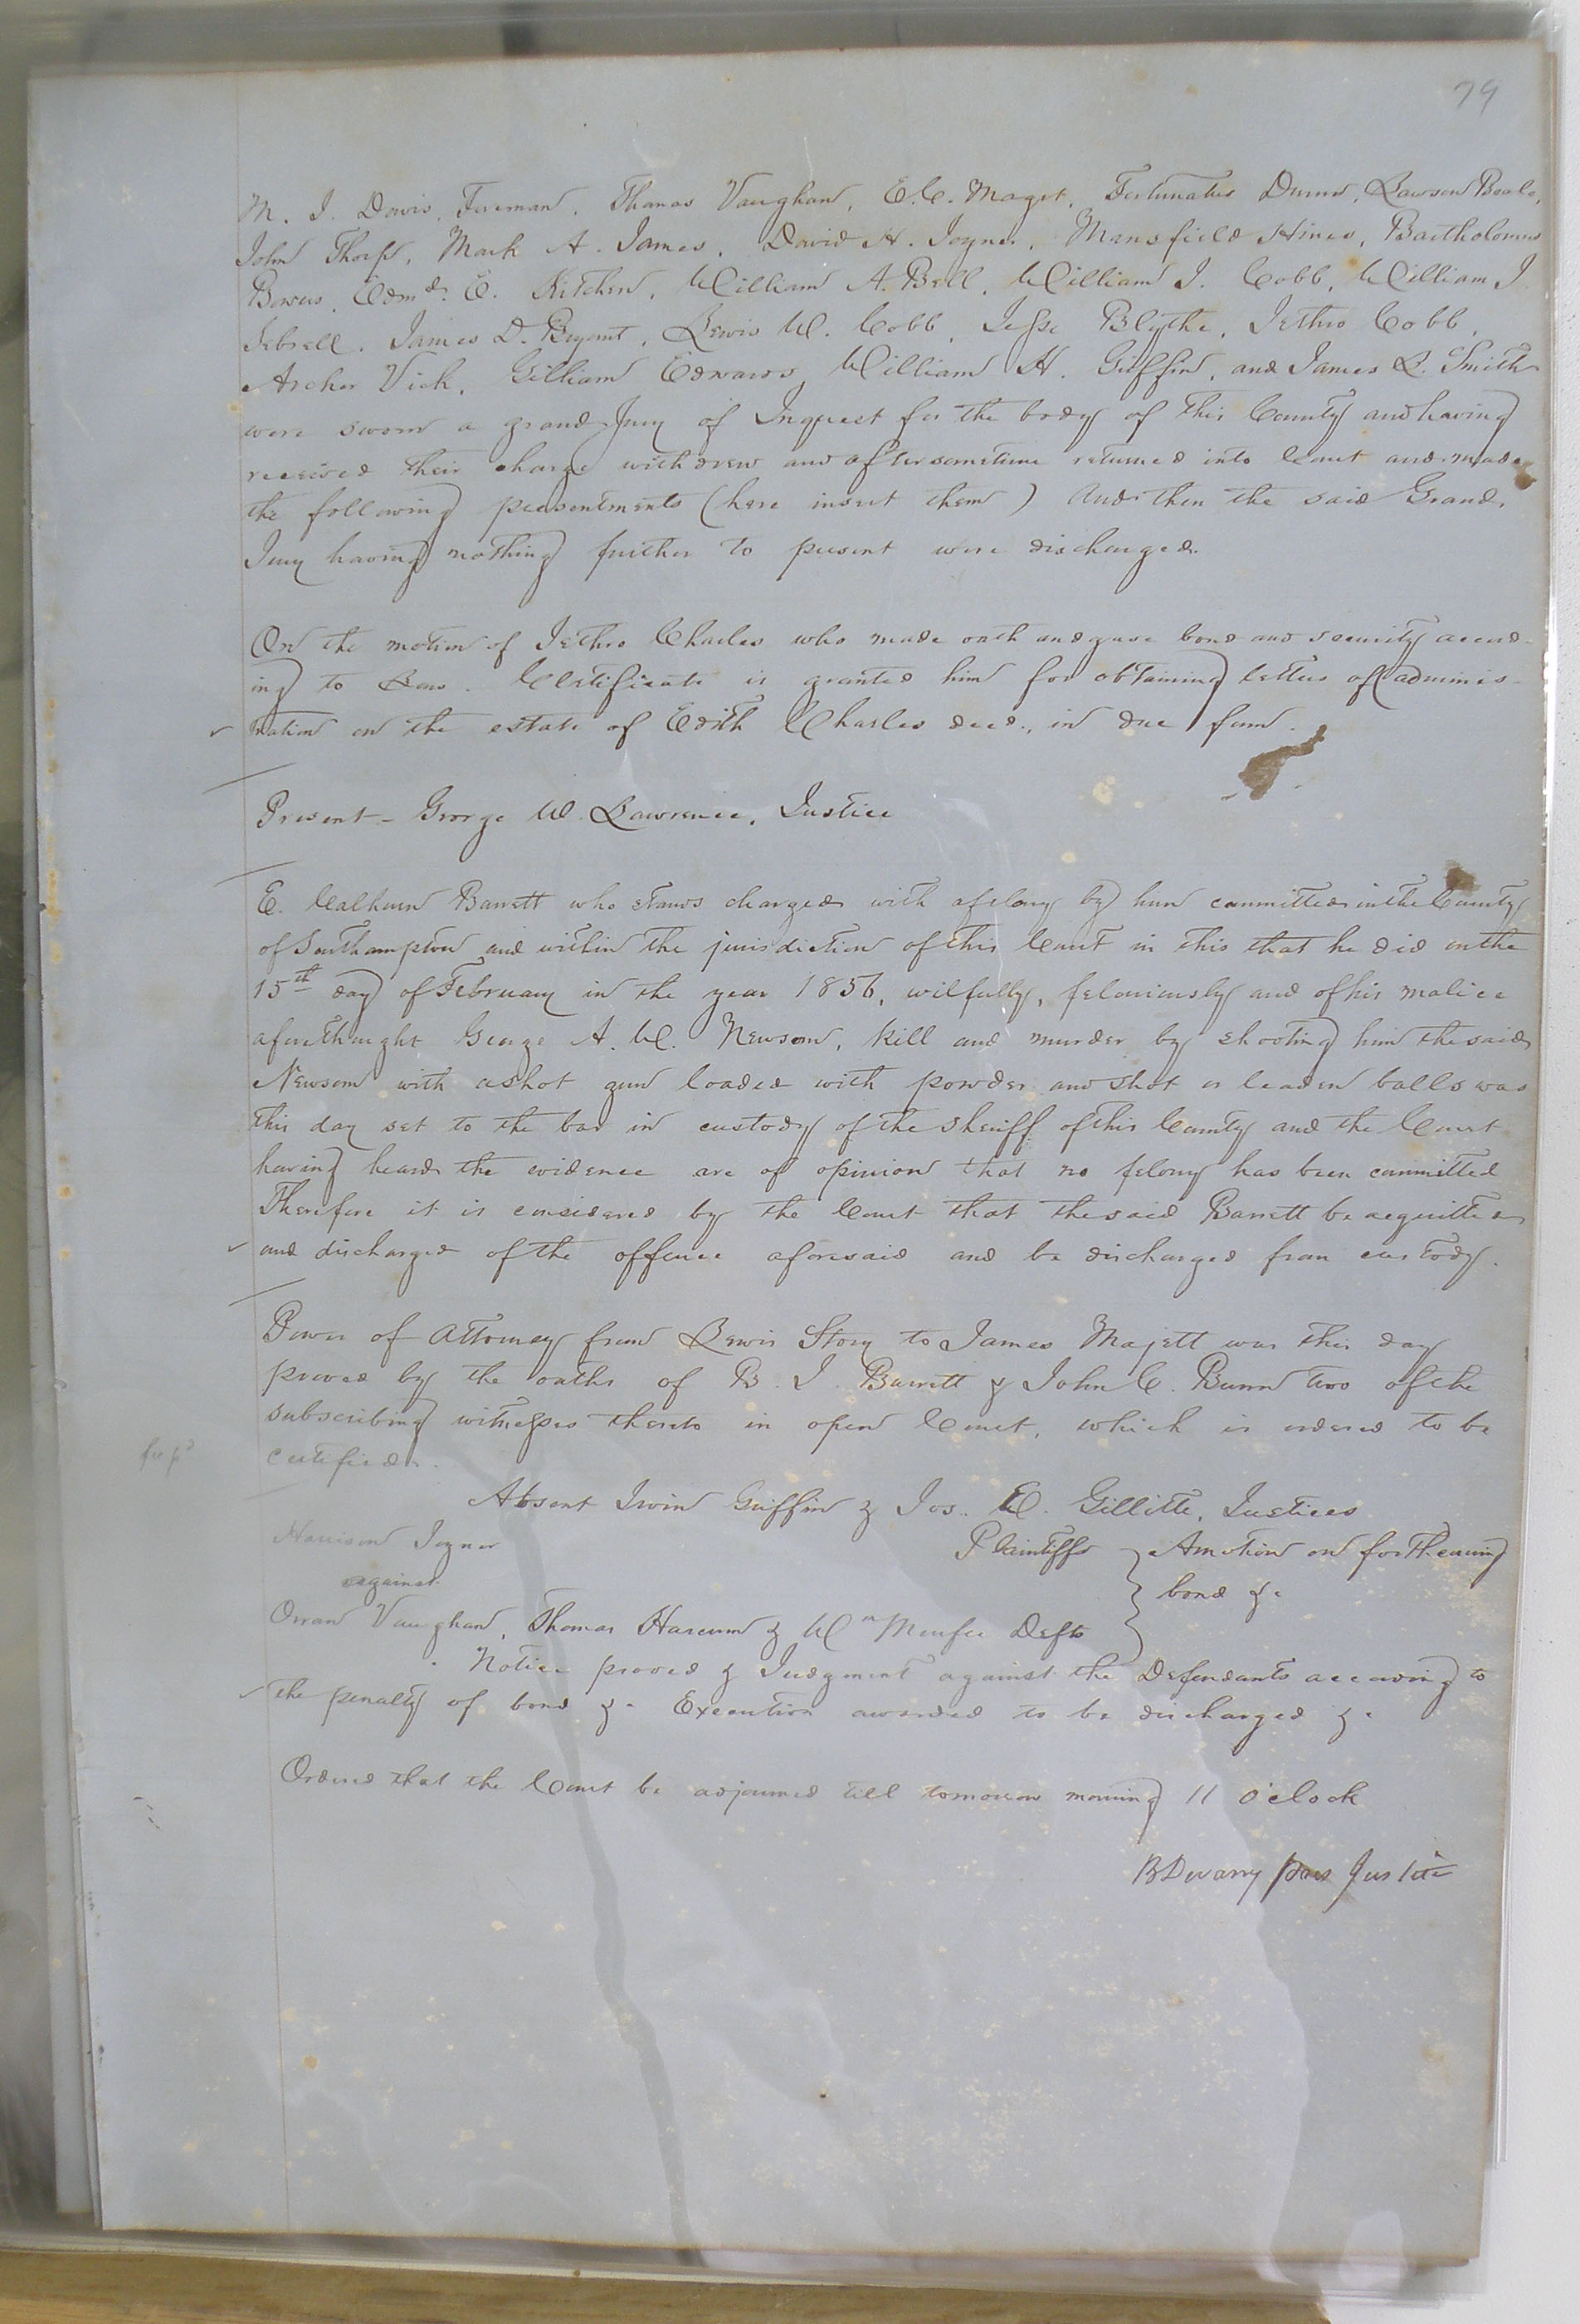 79
M. J. Davis, Foreman, Thomas Vaughan, E. C. Maget, Fortunatus Dunn, Lawson Beale,
John Thorp, Mark A. James, David H. Joyner, Mansfield Hines, Bartholomew
Bowers, Edmd. E. Kitchen, William A. Bell, William J. Cobb, William J.
Sebrell, James D. Bryant, Lewis W. Cobb, Jesse Blythe, Jethro Cobb,
Archer Vick, Gilliam Edwards, William H. Griffin, and James R. Smith
were sworn a grand Jury of Inquest for the body of this County and having
received their charge withdrew and after sometime returned into Court and made
the following presentments (here insert them) And then the said Grand
Jury having nothing further to present were discharged.
On the motion of Jethro Charles who made oath and gave bond and security accord-
ing to Law. Certificate is granted him for obtaining letters of adminis-
tration on the estate of Edith Charles decd., in due form.
Present - George W. Lawrence, Justice
E. Calhoun Barrett who stands charged with a felony by him committed in the County
of Southampton and within the jurisdiction of this Court in this that he did on the
15th day of February in the year 1856, wilfully, feloniously and of his malice
aforethought George A. W. Newsom, kill and murder by shooting him the said
Newsom with a shot gun loaded with powder and shot or leaden balls was
this day set to the bar in custody of the Sheriff of this County and the Court
having heard the evidence are of opinion that no felony has been committed
Therefore it is considered by the Court that the said Barrett be acquitted
and discharged of the offence aforesaid and be discharged from custody.
Power of Attorney from Lewis Story to James Majett was this day
proved by the oaths of B. J. Barrett & John C. Bunn two of the
subscribing witnesses thereto in open Court, which is ordered to be
certified.
Absent Irwin Griffin & Jos. E. Gillitte, Justices
Harrison Joyner Plaintiffs A motion on forthcoming
against bond &c
Orran Vaughan, Thomas Harcum & Wm Menfee Defts
Notice proved & Judgment against the Defendants according to
the penalty of bond &c Execution awarded to be discharged &c
Ordered that the Court be adjourned till tomorrow morning 11 o'clock
B Devany pres Justice